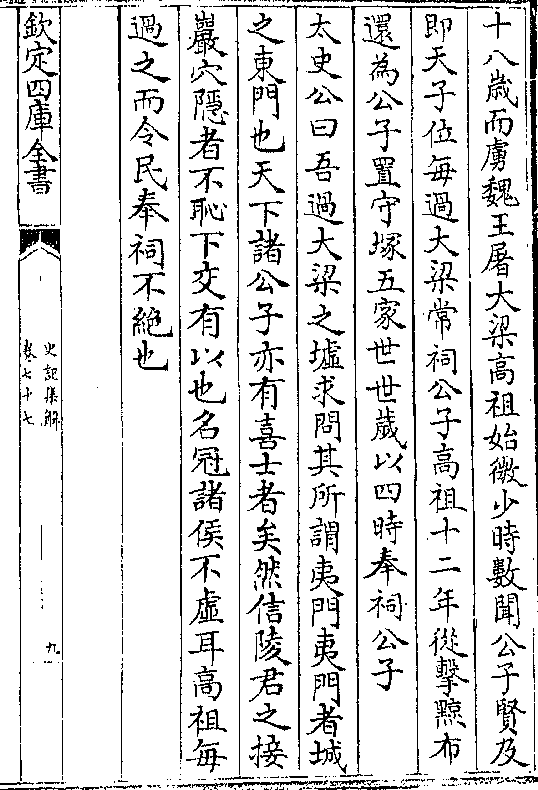 十八歳而虜魏王屠大梁髙祖始微少時數聞公子賢及
即天子位每過大梁常祠公子髙祖十二年從擊黥布
還為公子置守塚五家世世歲以四時奉祠公子
太史公曰吾過大梁之墟求問其所謂夷門夷門者城
之東門也天下諸公子亦有喜士者矣然信陵君之接
巖穴隱者不恥下交有以也名冠諸侯不虛耳髙祖每
過之而令民奉祠不絶也
欽定四庫全書
史記集解
卷七十七
九